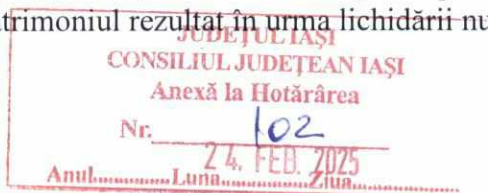 atrimoniul rezultat în urma lichidării nu
JUDEȚUL IAȘI
CONSILIUL JUDEȚEAN IAȘI
Anexă la Hotărârea
Nr. 102
24. FEB. 2025
Anul............Luna............Ziua............